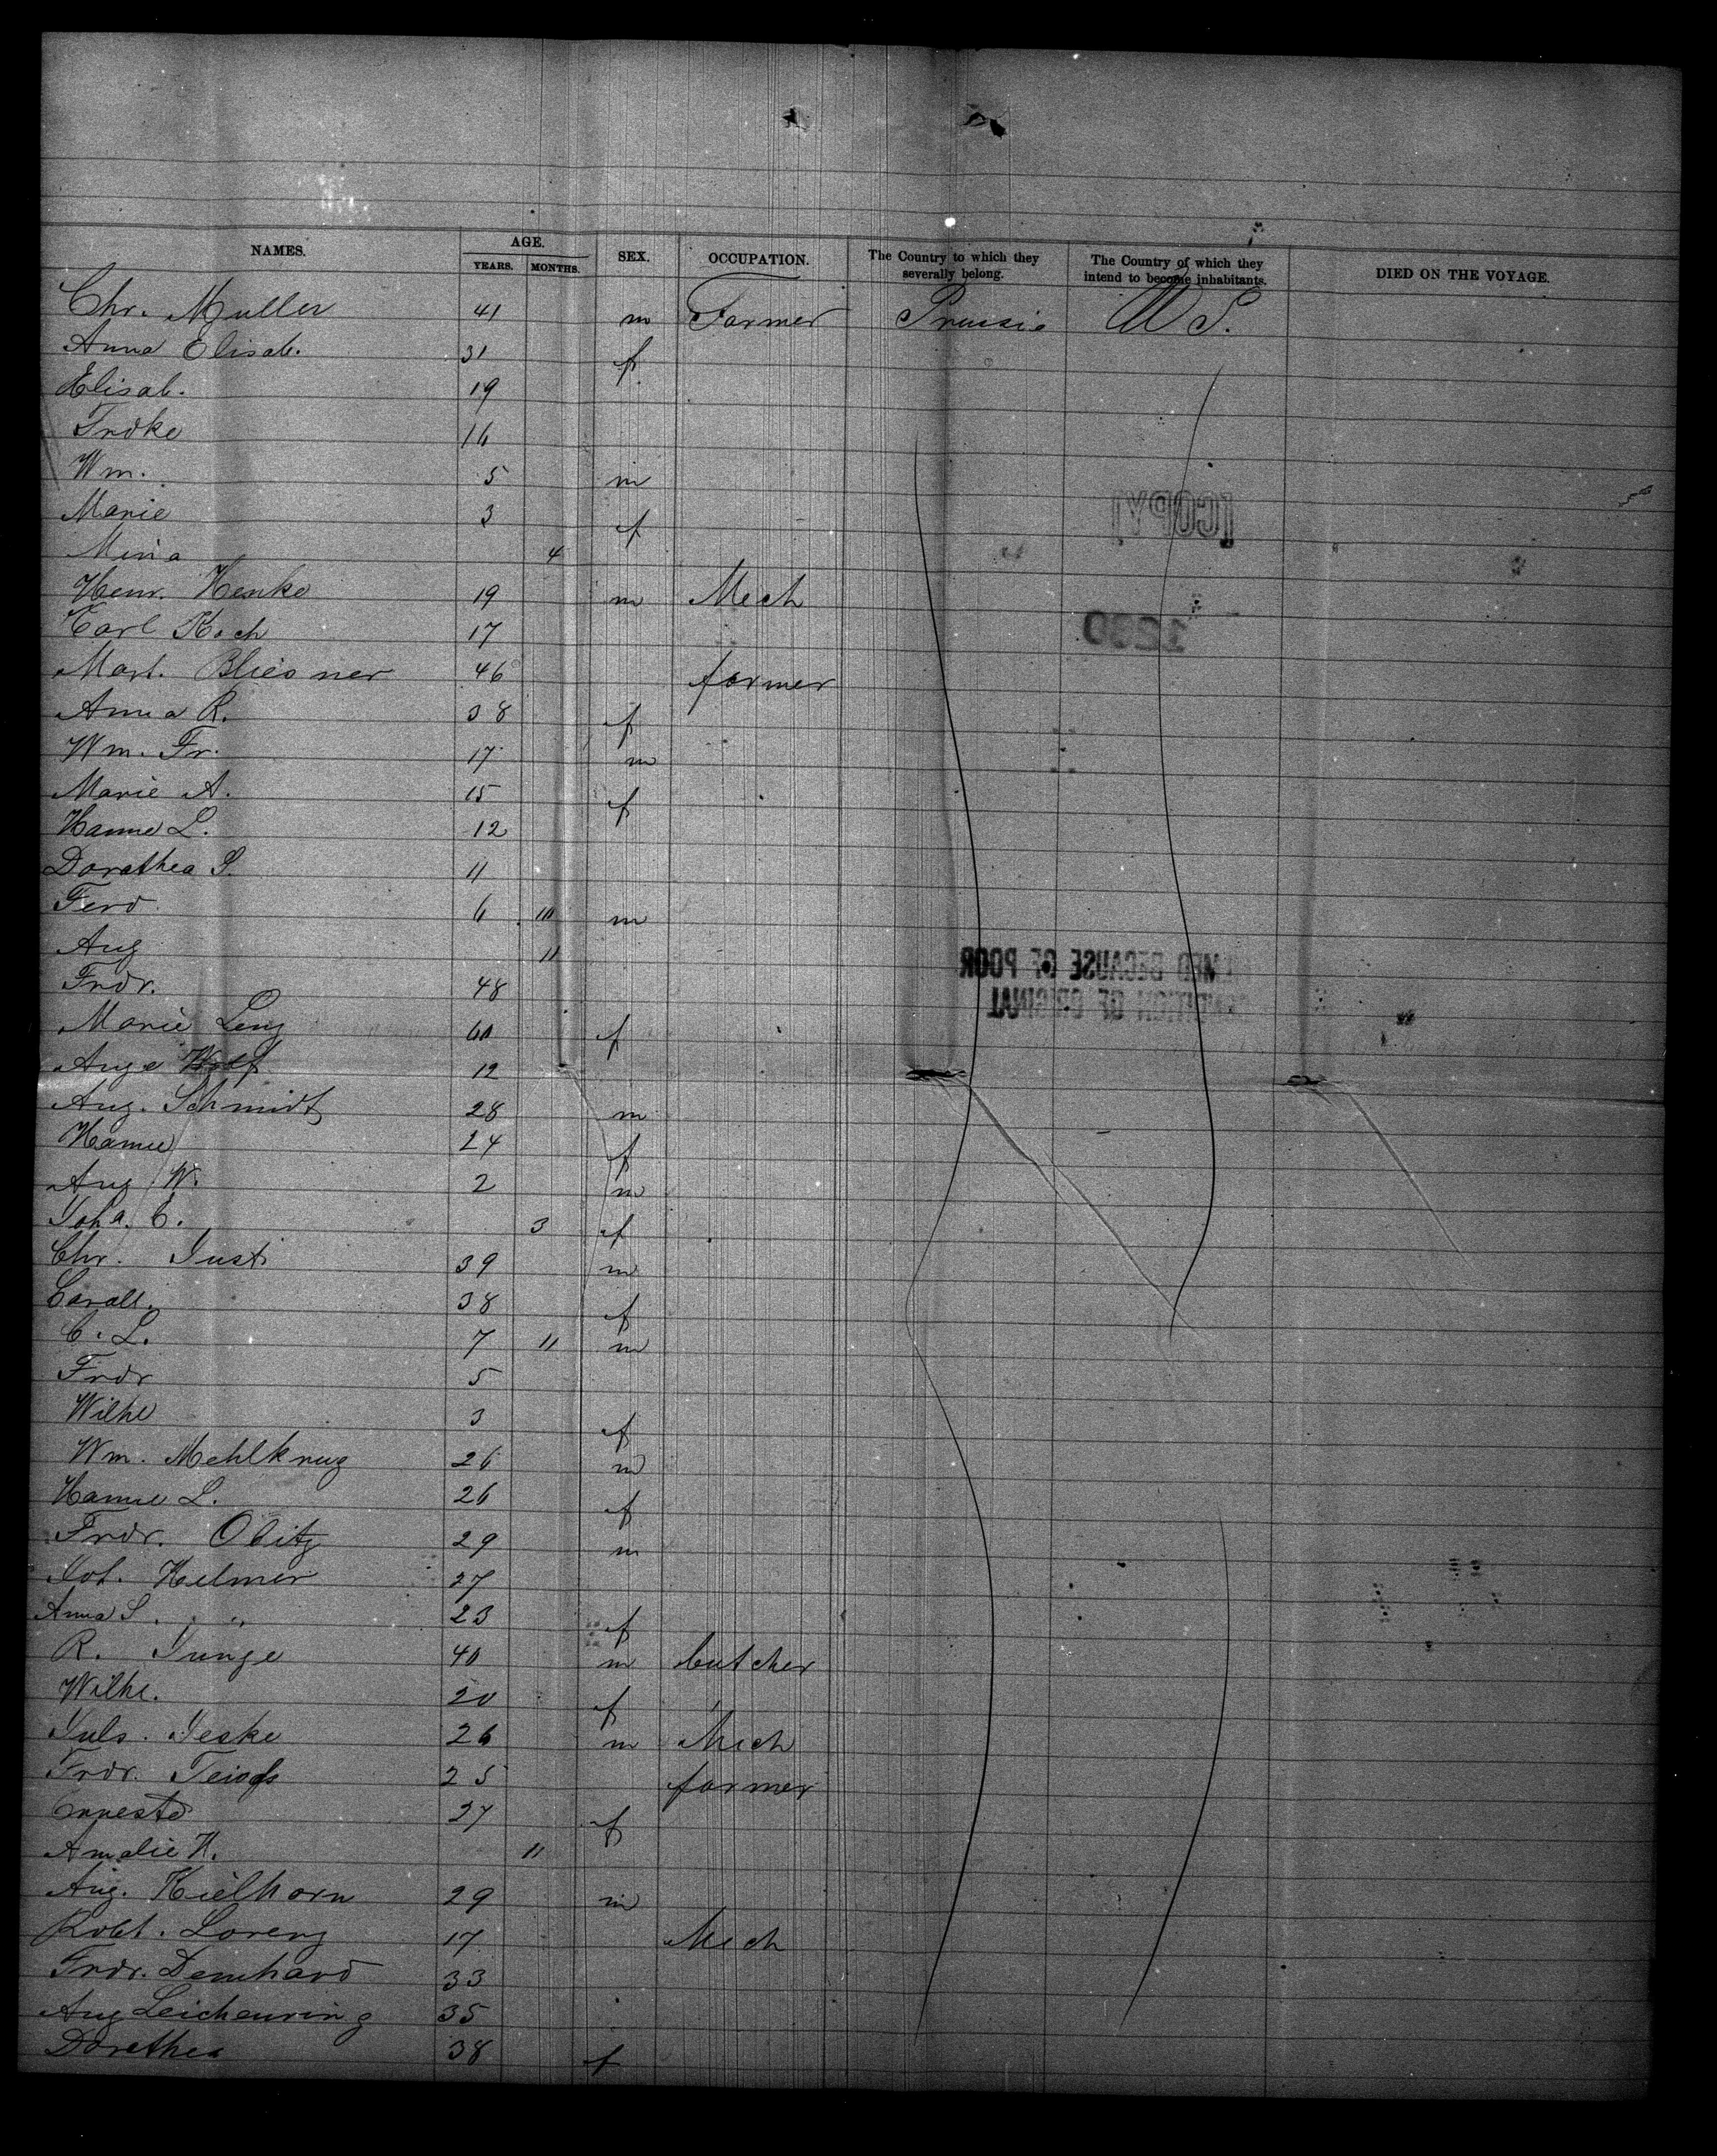 NAMES. AGE. SEX. OCCUPATION. The Country to which they severally belong. The Country of which they intend to become inhabitants. DIED ON THE VOYAGE.
YEARS. MONTHS.
Chr. Muller 41 m Farmer Prussia U S.
Anna Elisab. 31 f.
Elisab. 19
Frdke 16
Wm. 5 m
Marie 3 f
Mina 4
Henr. Henke 19 m Mech
Carl Koch 17
Mart. Bliesner 46 farmer
Anna R. 38 f
Wm. Fr. 17 m
Marie A. 15 f
Hanne L. 12
Dorathea S. 11
Ferd. 6 10 m
Aug 11
Frdr. 48
Marie Leng 60 f
Auge Wolf 12
Aug. Schmidt 28 m
Hanne 24 f
Aug W. 2 m
Joha. C. 3 f
Chr. Justi 39 m
Caroll. 38 f
C. L. 7 11 m
Frdr 5
Wilhe 3 f
Wm. Mehlkrug 26 m
Hanne L. 26 f
Frdr. Obitz 29 m
Joh. Helmer 27
Anna S. " " 23 f
R. Junge 40 m butcher
Wilhe. 20 f
Juls. Jeske 26 m Mech
Frdr. 25 farmer
Erneste 27 f
Amalie H. 11
Aug. Kielhorn 29 m
Robt. Lorenz 17 Mech
Frdr. Demhard 33
Aug Leichenring 35
Dorethea 38 f
[COPY]
1230
BECAUSE OF POOR
CONDITION OF ORIGINAL